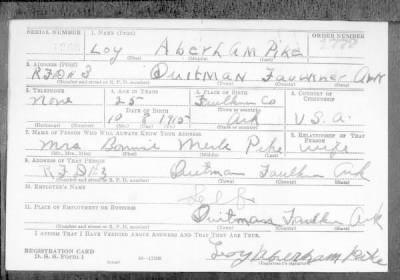 SERIAL NUMBER 1. NAME (Print) ORDER NUMBER
Loy Aberham Pike
(First) (Middle) (Last)
2. ADDRESS (Print)
RFD #3 Quitman Faulkner Ark
(Number and street or R. F. D. number) (Town) (County) (State)
3. TELEPHONE 4. AGE IN YEARS 5. PLACE OF BIRTH 6. COUNTRY OF CITIZENSHIP
None 25 Faulkner Co
DATE OF BIRTH
10 8 1915 Ark U.S.A.
(Exchange) (Number) (Mo.) (Day) (Yr.) (Town or county) (State or country)
7. NAME OF PERSON WHO WILL ALWAYS KNOW YOUR ADDRESS 8. RELATIONSHIP OF THAT PERSON
Mrs Bonnie Merle Pike Wife
(Mr., Mrs., Miss) (First) (Middle) (Last)
9. ADDRESS OF THAT PERSON
RFD #3 Quitman Faulkn Ark
(Number and street or R. F. D. number) (Town) (County) (State)
10. EMPLOYER'S NAME
Self
11. PLACE OF EMPLOYMENT OR BUSINESS
Quitman Faulkn Ark
(Number and street or R. F. D. number) (Town) (County) (State)
I AFFIRM THAT I HAVE VERIFIED ABOVE ANSWERS AND THAT THEY ARE TRUE.
REGISTRATION CARD
D. S. S. Form 1 Loy Aberham Pike
(over) (Registrant's signature)